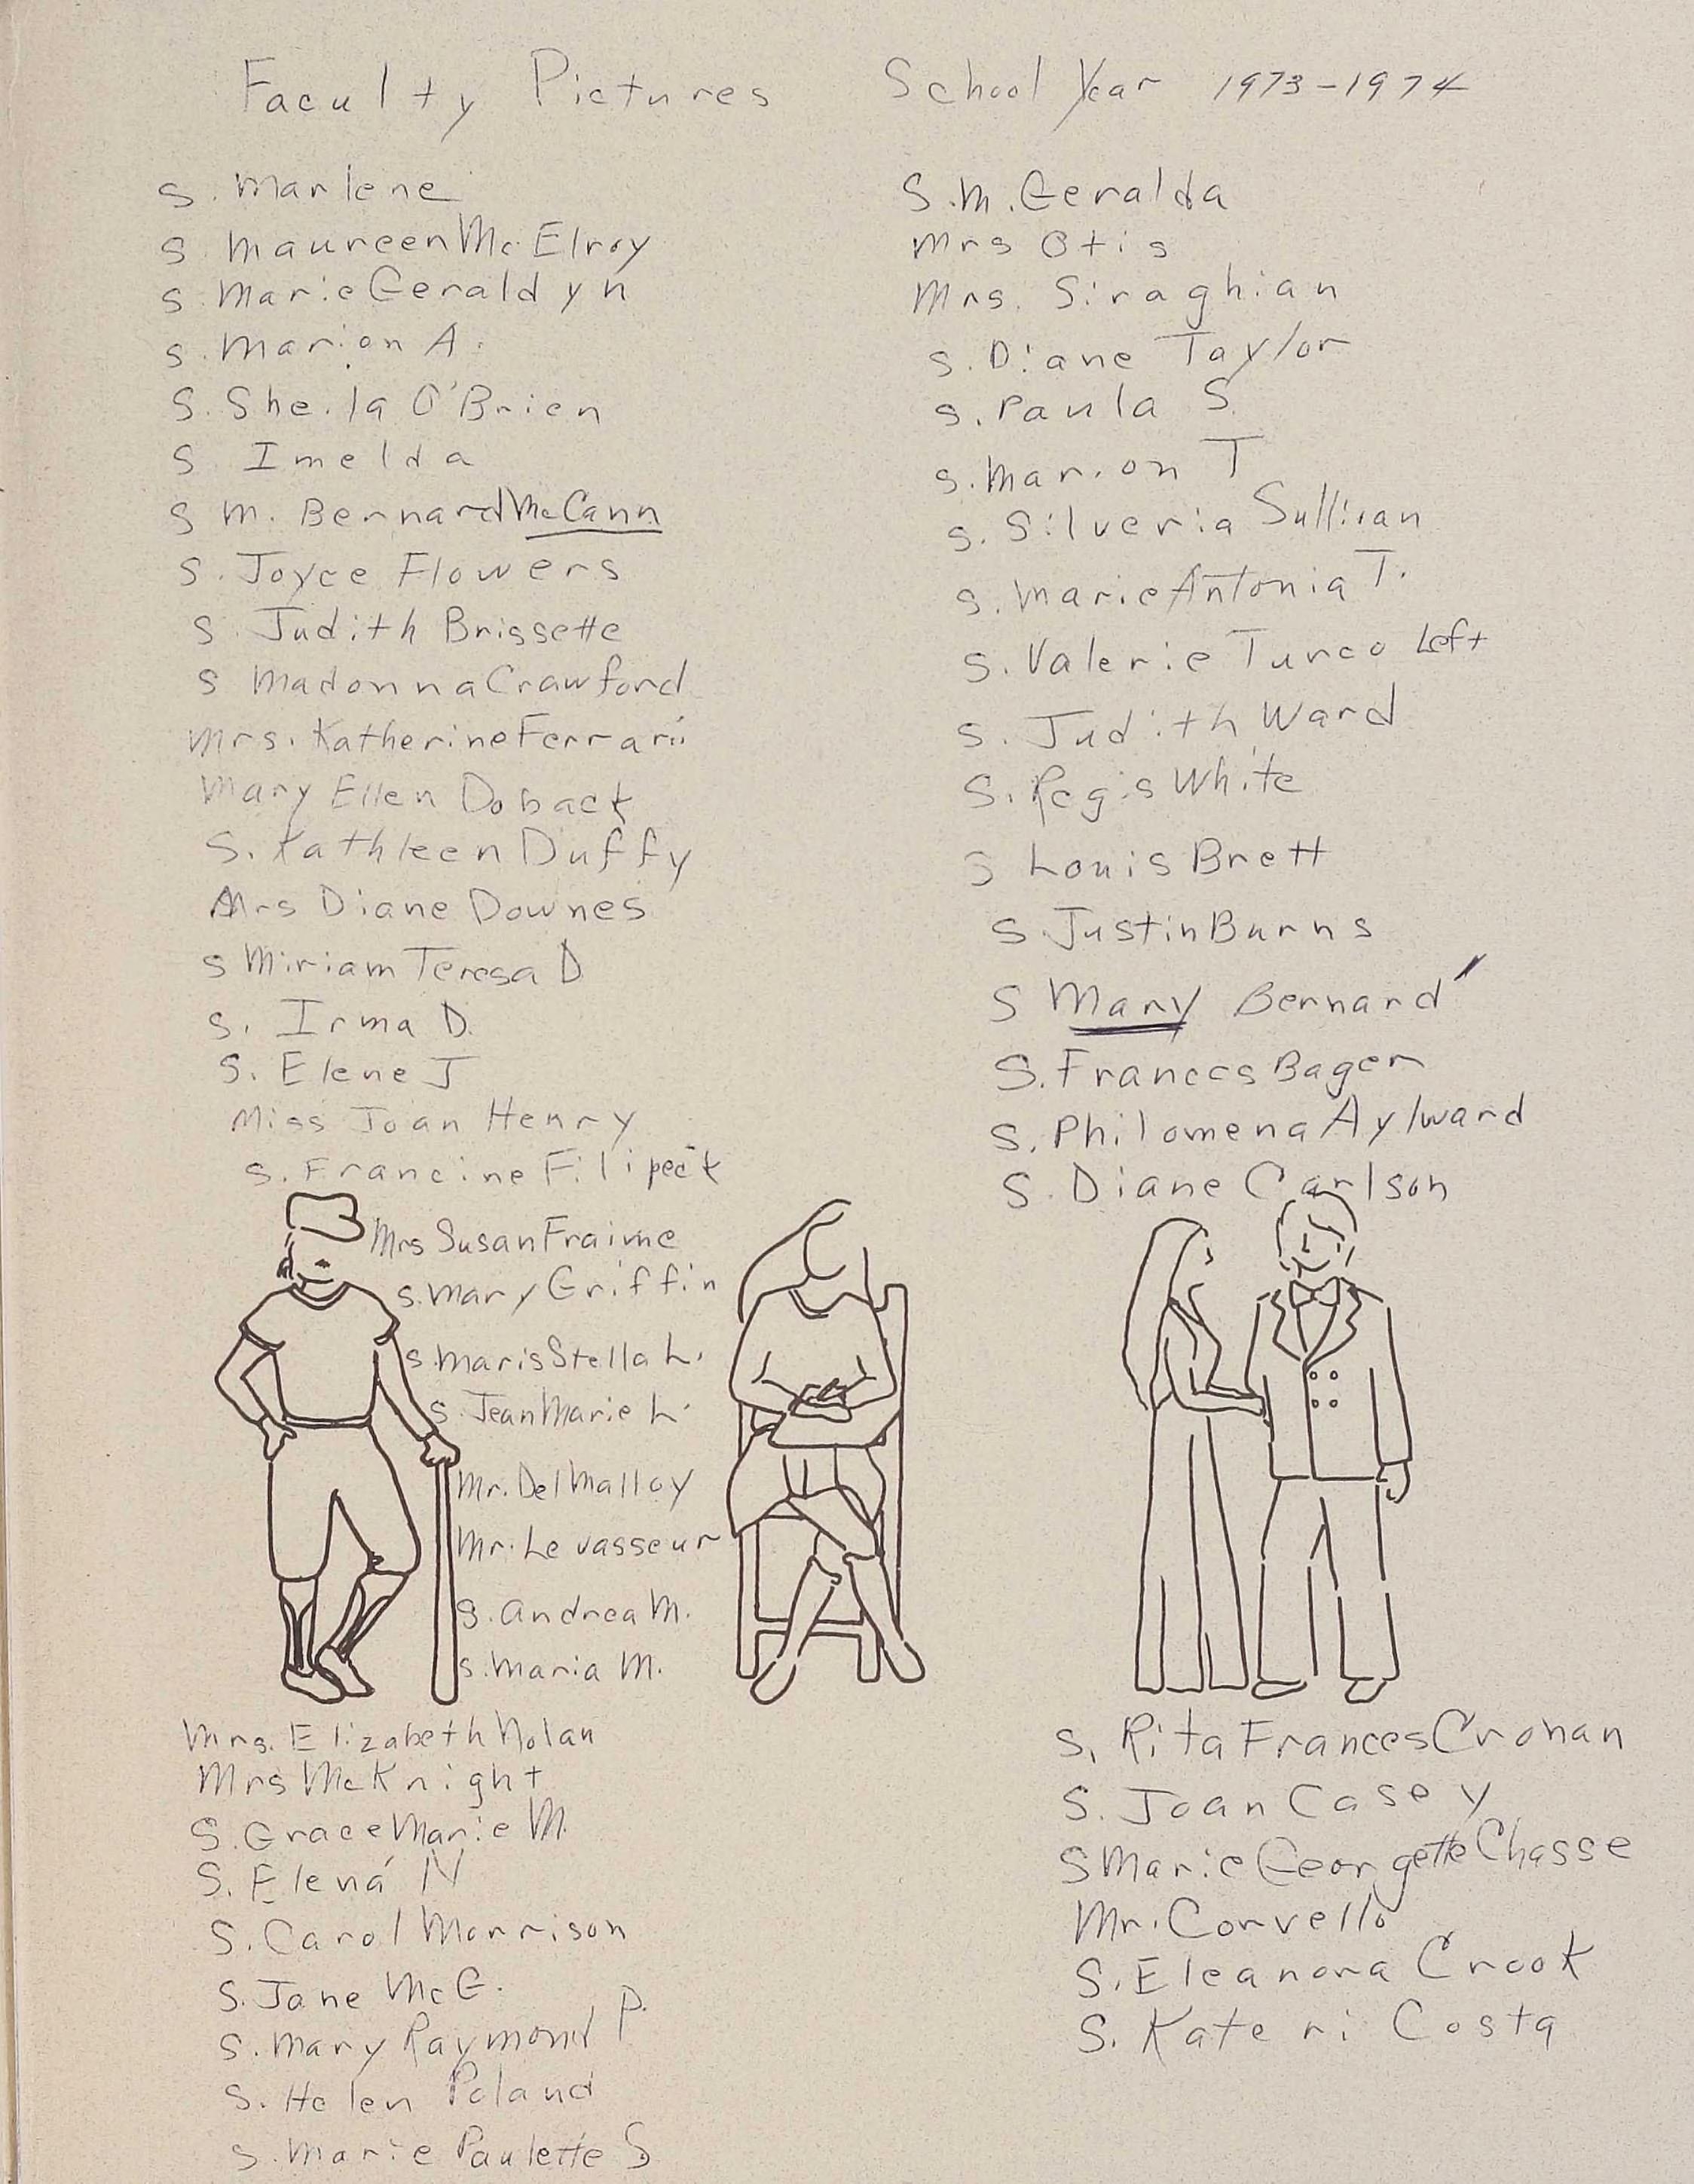 Faculty Pictures School Year 1973-1974
S. Marlene
S Maureen Mc Elroy
S Marie Geraldyn
S. Marion A.
S. Sheila O'Brien
S Imelda
S M. Bernard McCann
S. Joyce Flowers
S Judith Brissette
S Madonna Crawford
Mrs. Katherine Ferrarii
Mary Ellen Doback
S. Kathleen Duffy
Mrs Diane Downes
S Miriam Teresa D
S. Irma D.
S. Elene J
Miss Joan Henry
S. Francine Filipeck
Mrs Susan Fraime
S. Mary Griffin
S. Maris Stella L.
S. Jean Marie L.
Mr. Del Malloy
Mr. Le vasseur
S. Andrea M.
S. Maria M.
Mrs. Elizabeth Nolan
Mrs McKnight
S. Grace Marie M.
S. Elena N
S. Carol Morrison
S. Jane McG.
S. Mary Raymond P.
S. Helen Poland
S. Marie Paulette S
S. M. Geralda
Mrs Otis
Mrs. Siraghian
S. Diane Taylor
S. Paula S.
S. Marion T
S. Silveria Sullivan
S. Marie Antonia T.
S. Valerie Turco Left
S. Judith Ward
S. Regis White
S Louis Brett
S Justin Burns
S Mary Bernard
S. Frances Bager
S. Philomena Aylward
S. Diane Carlson
S. Rita Frances Cronan
S. Joan Casey
S Marie Georgette Chasse
Mr. Corvello
S. Eleanora Crook
S. Kateri Costa